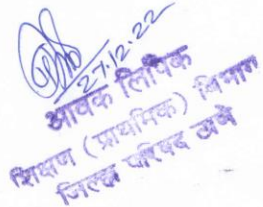 27.12.22
आवक लिपिक
शिक्षण (प्राथमिक) विभाग
जिल्हा परिषद ठाणे